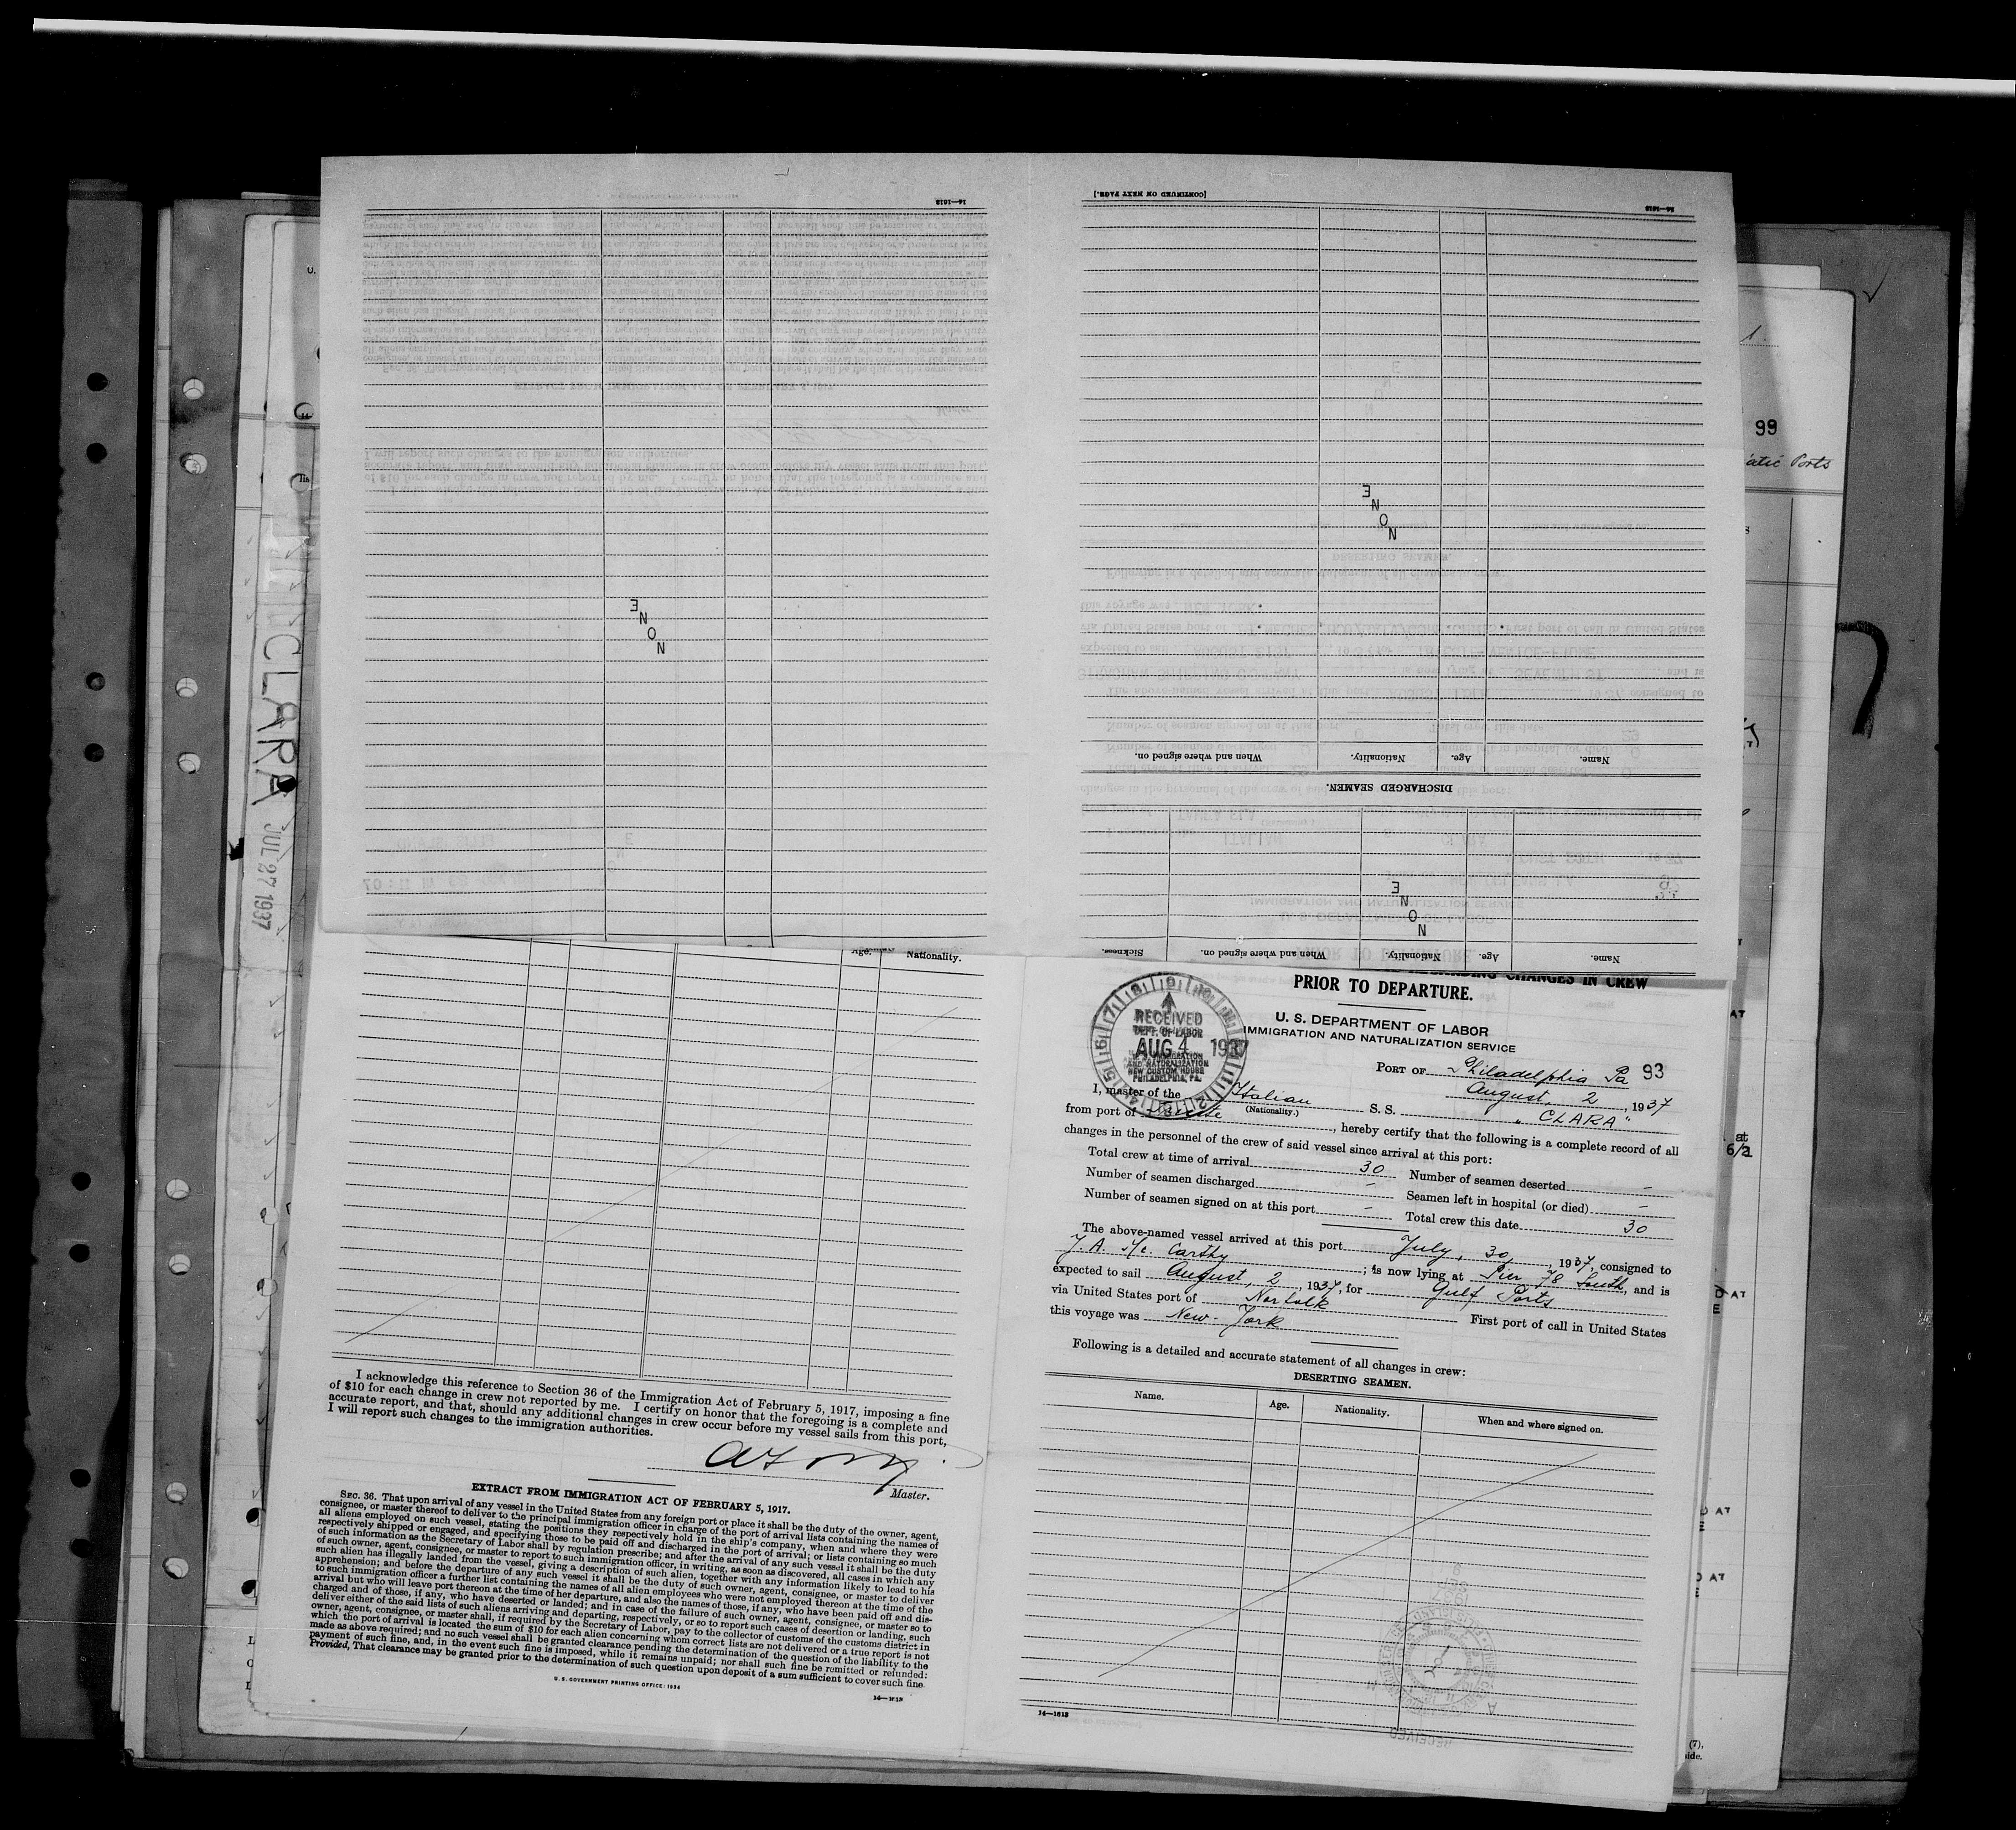 [CONTINUED ON NEXT PAGE.]
14—1613
14—1613
NONE
NONE
When and where signed on.
Nationality.
Age.
Name.
DISCHARGED SEAMEN.
NONE
Sickness.
When and where signed on.
Nationality.
Age.
Name.
CLARA JUL 27 1937
99
Ports
Age. Nationality.
I acknowledge this reference to Section 36 of the Immigration Act of February 5, 1917, imposing a fine
of $10 for each change in crew not reported by me. I certify on honor that the foregoing is a complete and
accurate report, and that, should any additional changes in crew occur before my vessel sails from this port,
I will report such changes to the immigration authorities.
Master.
EXTRACT FROM IMMIGRATION ACT OF FEBRUARY 5, 1917.
SEC. 36. That upon arrival of any vessel in the United States from any foreign port or place it shall be the duty of the owner, agent,
consignee, or master thereof to deliver to the principal immigration officer in charge of the port of arrival lists containing the names of
all aliens employed on such vessel, stating the positions they respectively hold in the ship's company, when and where they were
respectively shipped or engaged, and specifying those to be paid off and discharged in the port of arrival; or lists containing so much
of such information as the Secretary of Labor shall by regulation prescribe; and after the arrival of any such vessel it shall be the duty
of such owner, agent, consignee, or master to report to such immigration officer, in writing, as soon as discovered, all cases in which any
such alien has illegally landed from the vessel, giving a description of such alien, together with any information likely to lead to his
apprehension; and before the departure of any such vessel it shall be the duty of such owner, agent, consignee, or master to deliver
to such immigration officer a further list containing the names of all alien employees who were not employed thereon at the time of the
arrival but who will leave port thereon at the time of her departure, and also the names of those, if any, who have been paid off and dis-
charged and of those, if any, who have deserted or landed; and in case of the failure of such owner, agent, consignee, or master so to
deliver either of the said lists of such aliens arriving and departing, respectively, or so to report such cases of desertion or landing, such
owner, agent, consignee, or master shall, if required by the Secretary of Labor, pay to the collector of customs of the customs district in
which the port of arrival is located the sum of $10 for each alien concerning whom correct lists are not delivered or a true report is not
made as above required; and no such vessel shall be granted clearance pending the determination of the question of the liability to the
payment of such fine, and, in the event such fine is imposed, while it remains unpaid; nor shall such fine be remitted or refunded:
Provided, That clearance may be granted prior to the determination of such question upon deposit of a sum sufficient to cover such fine
U. S. GOVERNMENT PRINTING OFFICE: 1934
14—1613
CHANGES IN CREW
PRIOR TO DEPARTURE.
U. S. DEPARTMENT OF LABOR
IMMIGRATION AND NATURALIZATION SERVICE
RECEIVED
DEPT. OF LABOR
AUG 4 1937
IMMIGRATION
AND NATURALIZATION
NEW CUSTOM HOUSE
PHILADELPHIA, PA.
PORT OF Philadelphia Pa 93
August, 2, 1937
I, master of the Italian S. S. "CLARA"
(Nationality.)
from port of Trieste, hereby certify that the following is a complete record of all
changes in the personnel of the crew of said vessel since arrival at this port:
Total crew at time of arrival 30 Number of seamen deserted -
Number of seamen discharged - Seamen left in hospital (or died) -
Number of seamen signed on at this port - Total crew this date 30
The above-named vessel arrived at this port July, 30, 1937, consigned to
J. A. Mc. Carthy; is now lying at Pier 78 South, and is
expected to sail August, 2, 1937, for Gulf Ports
via United States port of Norfolk First port of call in United States
this voyage was New-York
Following is a detailed and accurate statement of all changes in crew:
DESERTING SEAMEN.
Name. Age. Nationality. When and where signed on.
14—1613